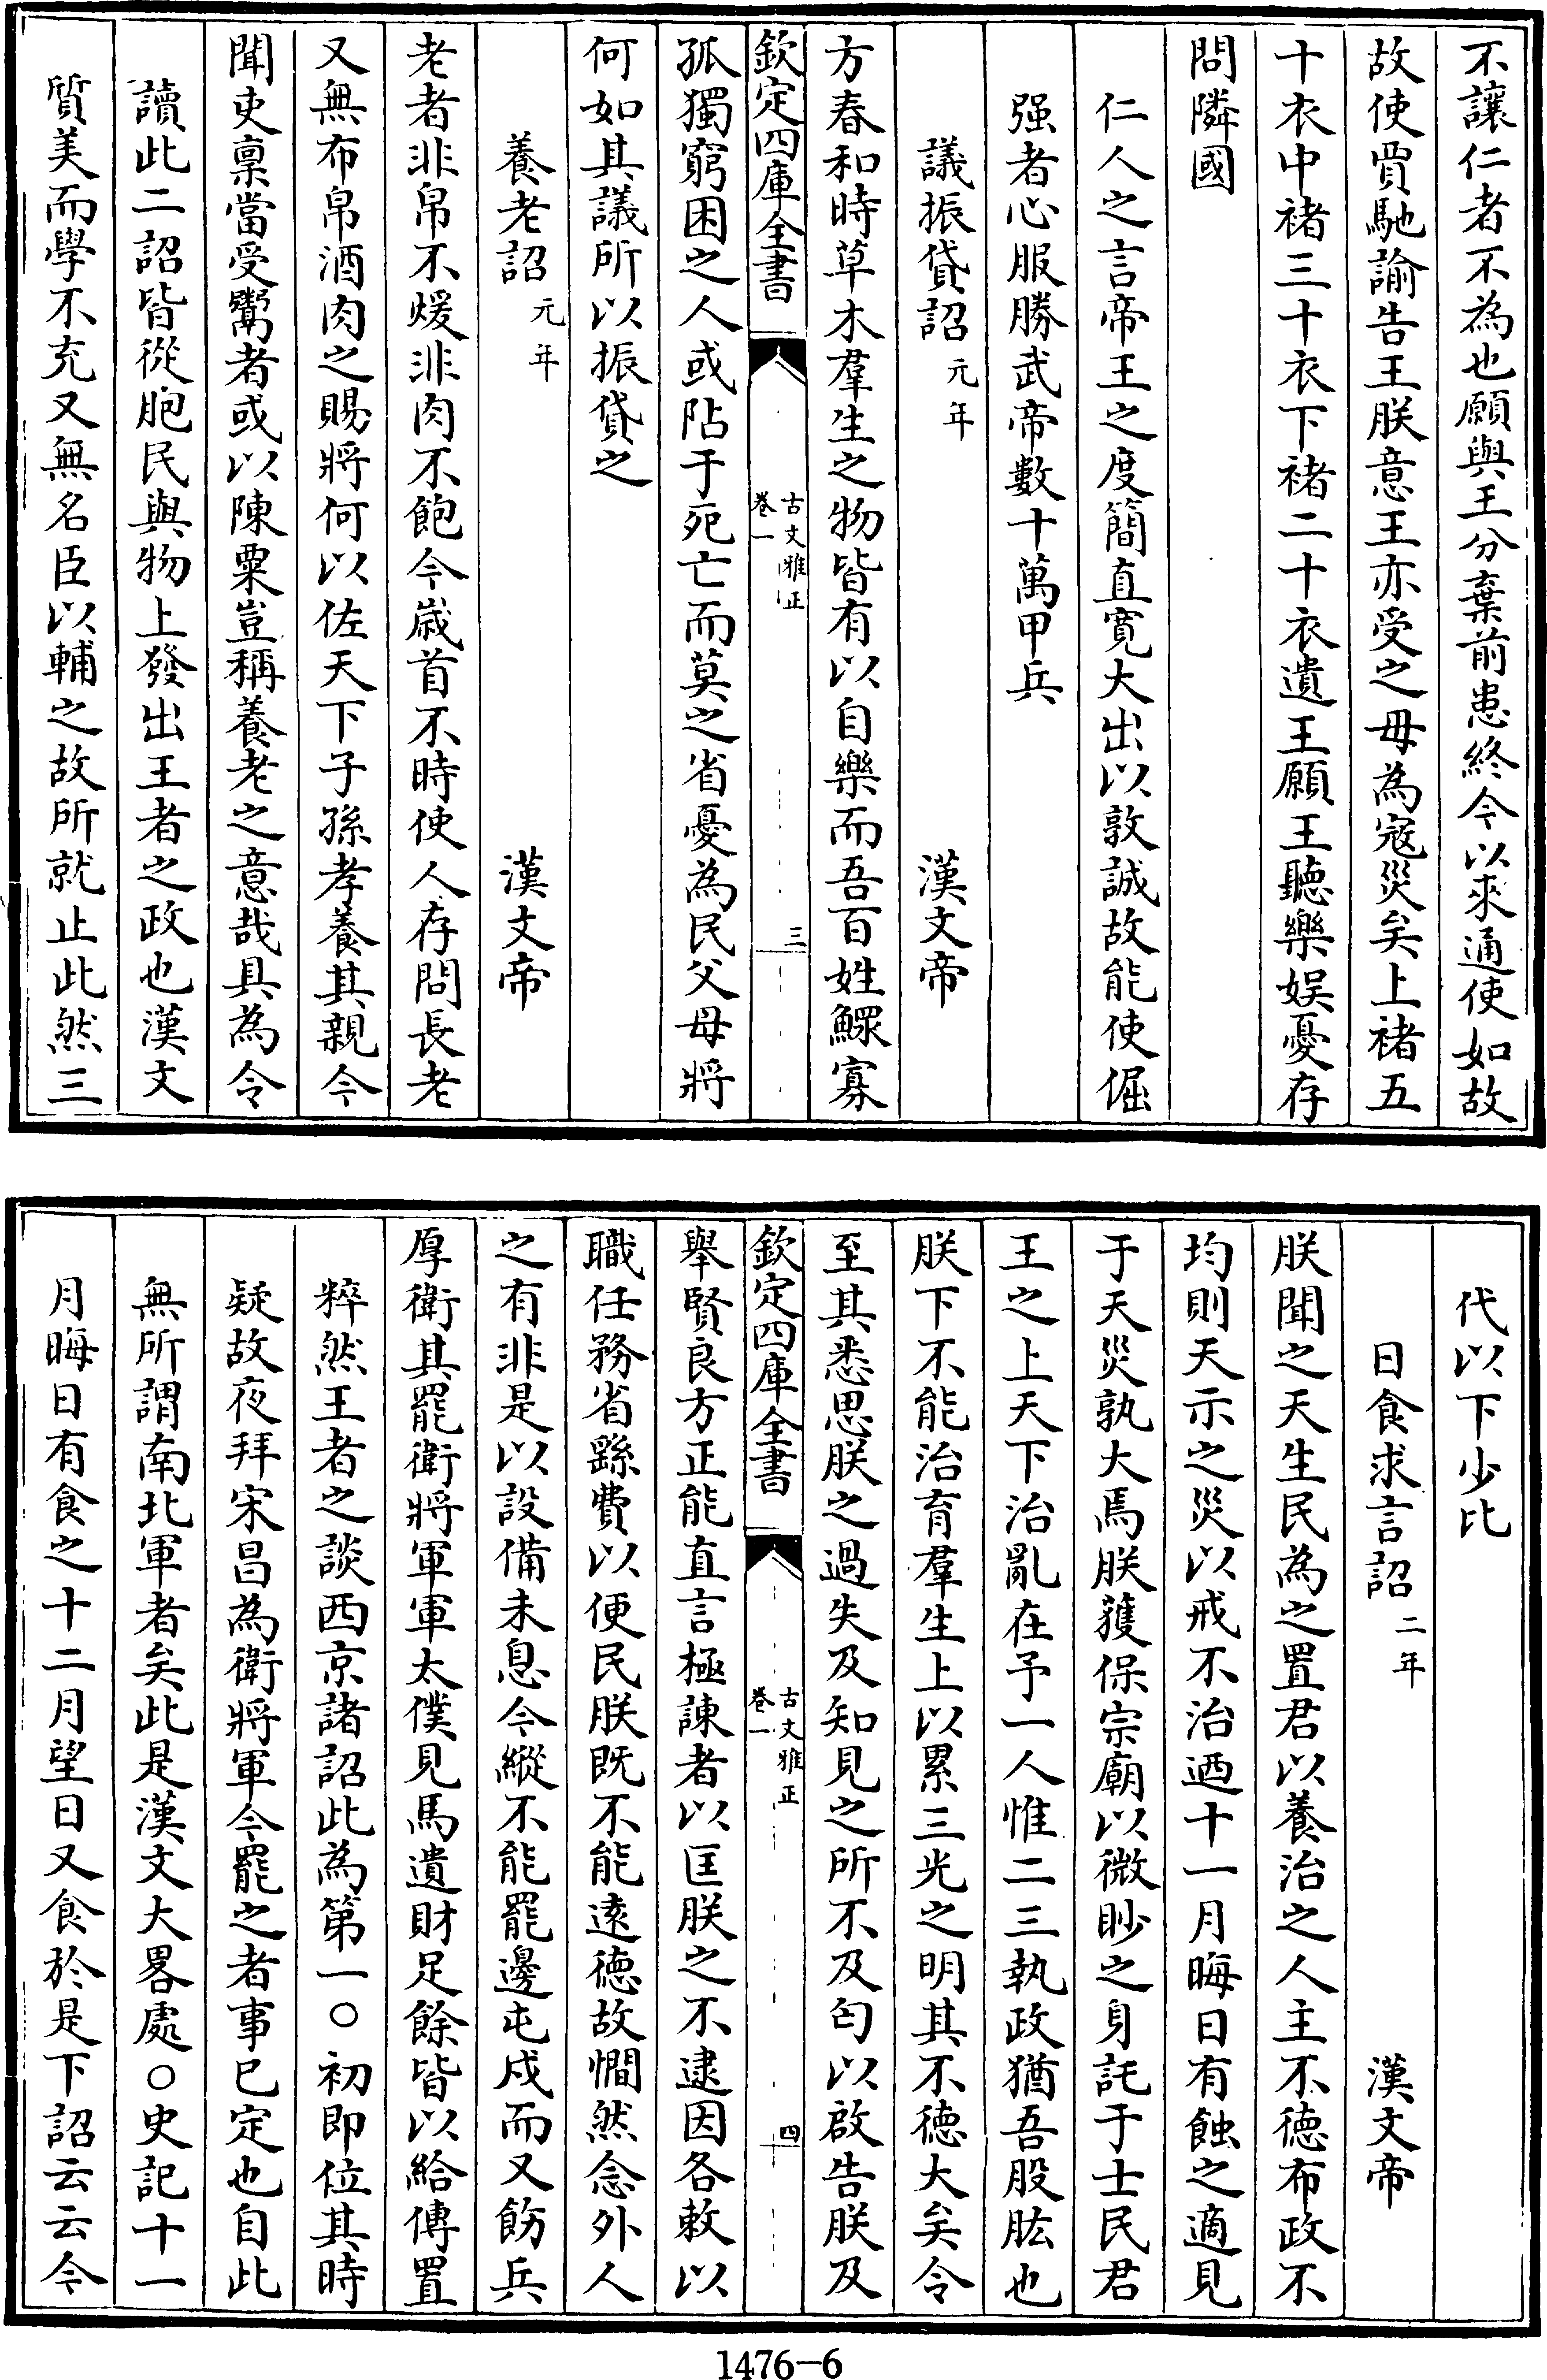 不讓仁者不為也願與王分棄前患終今以來通使如故
故使賈馳諭告王朕意王亦受之毋為寇災矣上褚五
十衣中褚三十衣下褚二十衣遺王願王聽樂娛憂存
問隣國
仁人之言帝王之度簡直寬大出以敦誠故能使倔
强者心服勝武帝數十萬甲兵
議振貸詔 元年 漢文帝
方春和時草木羣生之物皆有以自樂而吾百姓鰥寡
欽定四庫全書 古文雅正 卷一 三
孤獨窮困之人或阽于死亡而莫之省憂為民父母將
何如其議所以振貸之
養老詔 元年 漢文帝
老者非帛不煖非肉不飽今歲首不時使人存問長老
又無布帛酒肉之賜將何以佐天下子孫孝養其親今
聞吏稟當受鬻者或以陳粟豈稱養老之意哉具為令
讀此二詔皆從胞民與物上發出王者之政也漢文
質美而學不充又無名臣以輔之故所就止此然三
代以下少比
日食求言詔 二年 漢文帝
朕聞之天生民為之置君以養治之人主不德布政不
均則天示之災以戒不治迺十一月晦日有蝕之適見
于天災孰大焉朕獲保宗廟以微眇之身託于士民君
王之上天下治亂在予一人惟二三執政猶吾股肱也
朕下不能治育羣生上以累三光之明其不德大矣令
至其悉思朕之過失及知見之所不及匄以啟告朕及
欽定四庫全書 古文雅正 卷一 四
舉賢良方正能直言極諫者以匡朕之不逮因各敕以
職任務省繇費以便民朕既不能遠德故憪然念外人
之有非是以設備未息今縱不能罷邊屯戍而又飭兵
厚衛其罷衛將軍軍太僕見馬遺財足餘皆以給傳置
粹然王者之談西京諸詔此為第一○初即位其時
疑故夜拜宋昌為衛將軍今罷之者事已定也自此
無所謂南北軍者矣此是漢文大畧處○史記十一
月晦日有食之十二月望日又食於是下詔云云今
1476-6